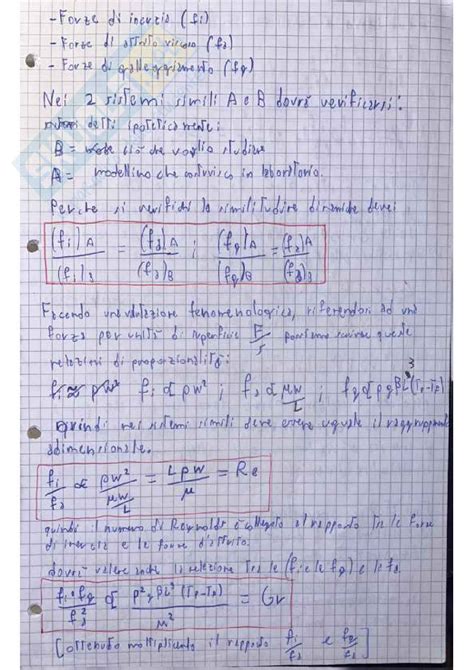 - Forze di inerzia (fi)
- Forze di attrito viscoso (fa)
- Forze di galleggiamento (fg)
Nei 2 sistemi simili A e B dovrà verificarsi:
sistemi detti ipoteticamente:
B = ciò che voglio studiare
A = modellino che costruisco in laboratorio.
Perché si verifichi la similitudine dinamica deve:
(fi)A / (fi)B = (fa)A / (fa)B ; (fg)A / (fg)B = (fa)A / (fa)B
Facendo una valutazione fenomenologica, riferendoci ad una
forza per unità di superficie F/S possiamo scrivere queste
relazioni di proporzionalità:
fi ∝ ρw² ; fa ∝ μw/L ; fg ∝ ρgβL³(Tp-TF)
quindi nei sistemi simili deve essere uguale il raggruppamento
adimensionale.
fi/fa ∝ ρw² / (μw/L) = Lρw/μ = Re
quindi il numero di Reynolds è collegato al rapporto tra le forze
di inerzia e le forze d'attrito.
dovrà valere anche la relazione tra le (fi e le fg) e le fa
fi·fg / fa² ∝ ρ²gβL³(Tp-TF) / μ² = Gr
[ottenuto moltiplicando il rapporto fi/fa e fg/fa]